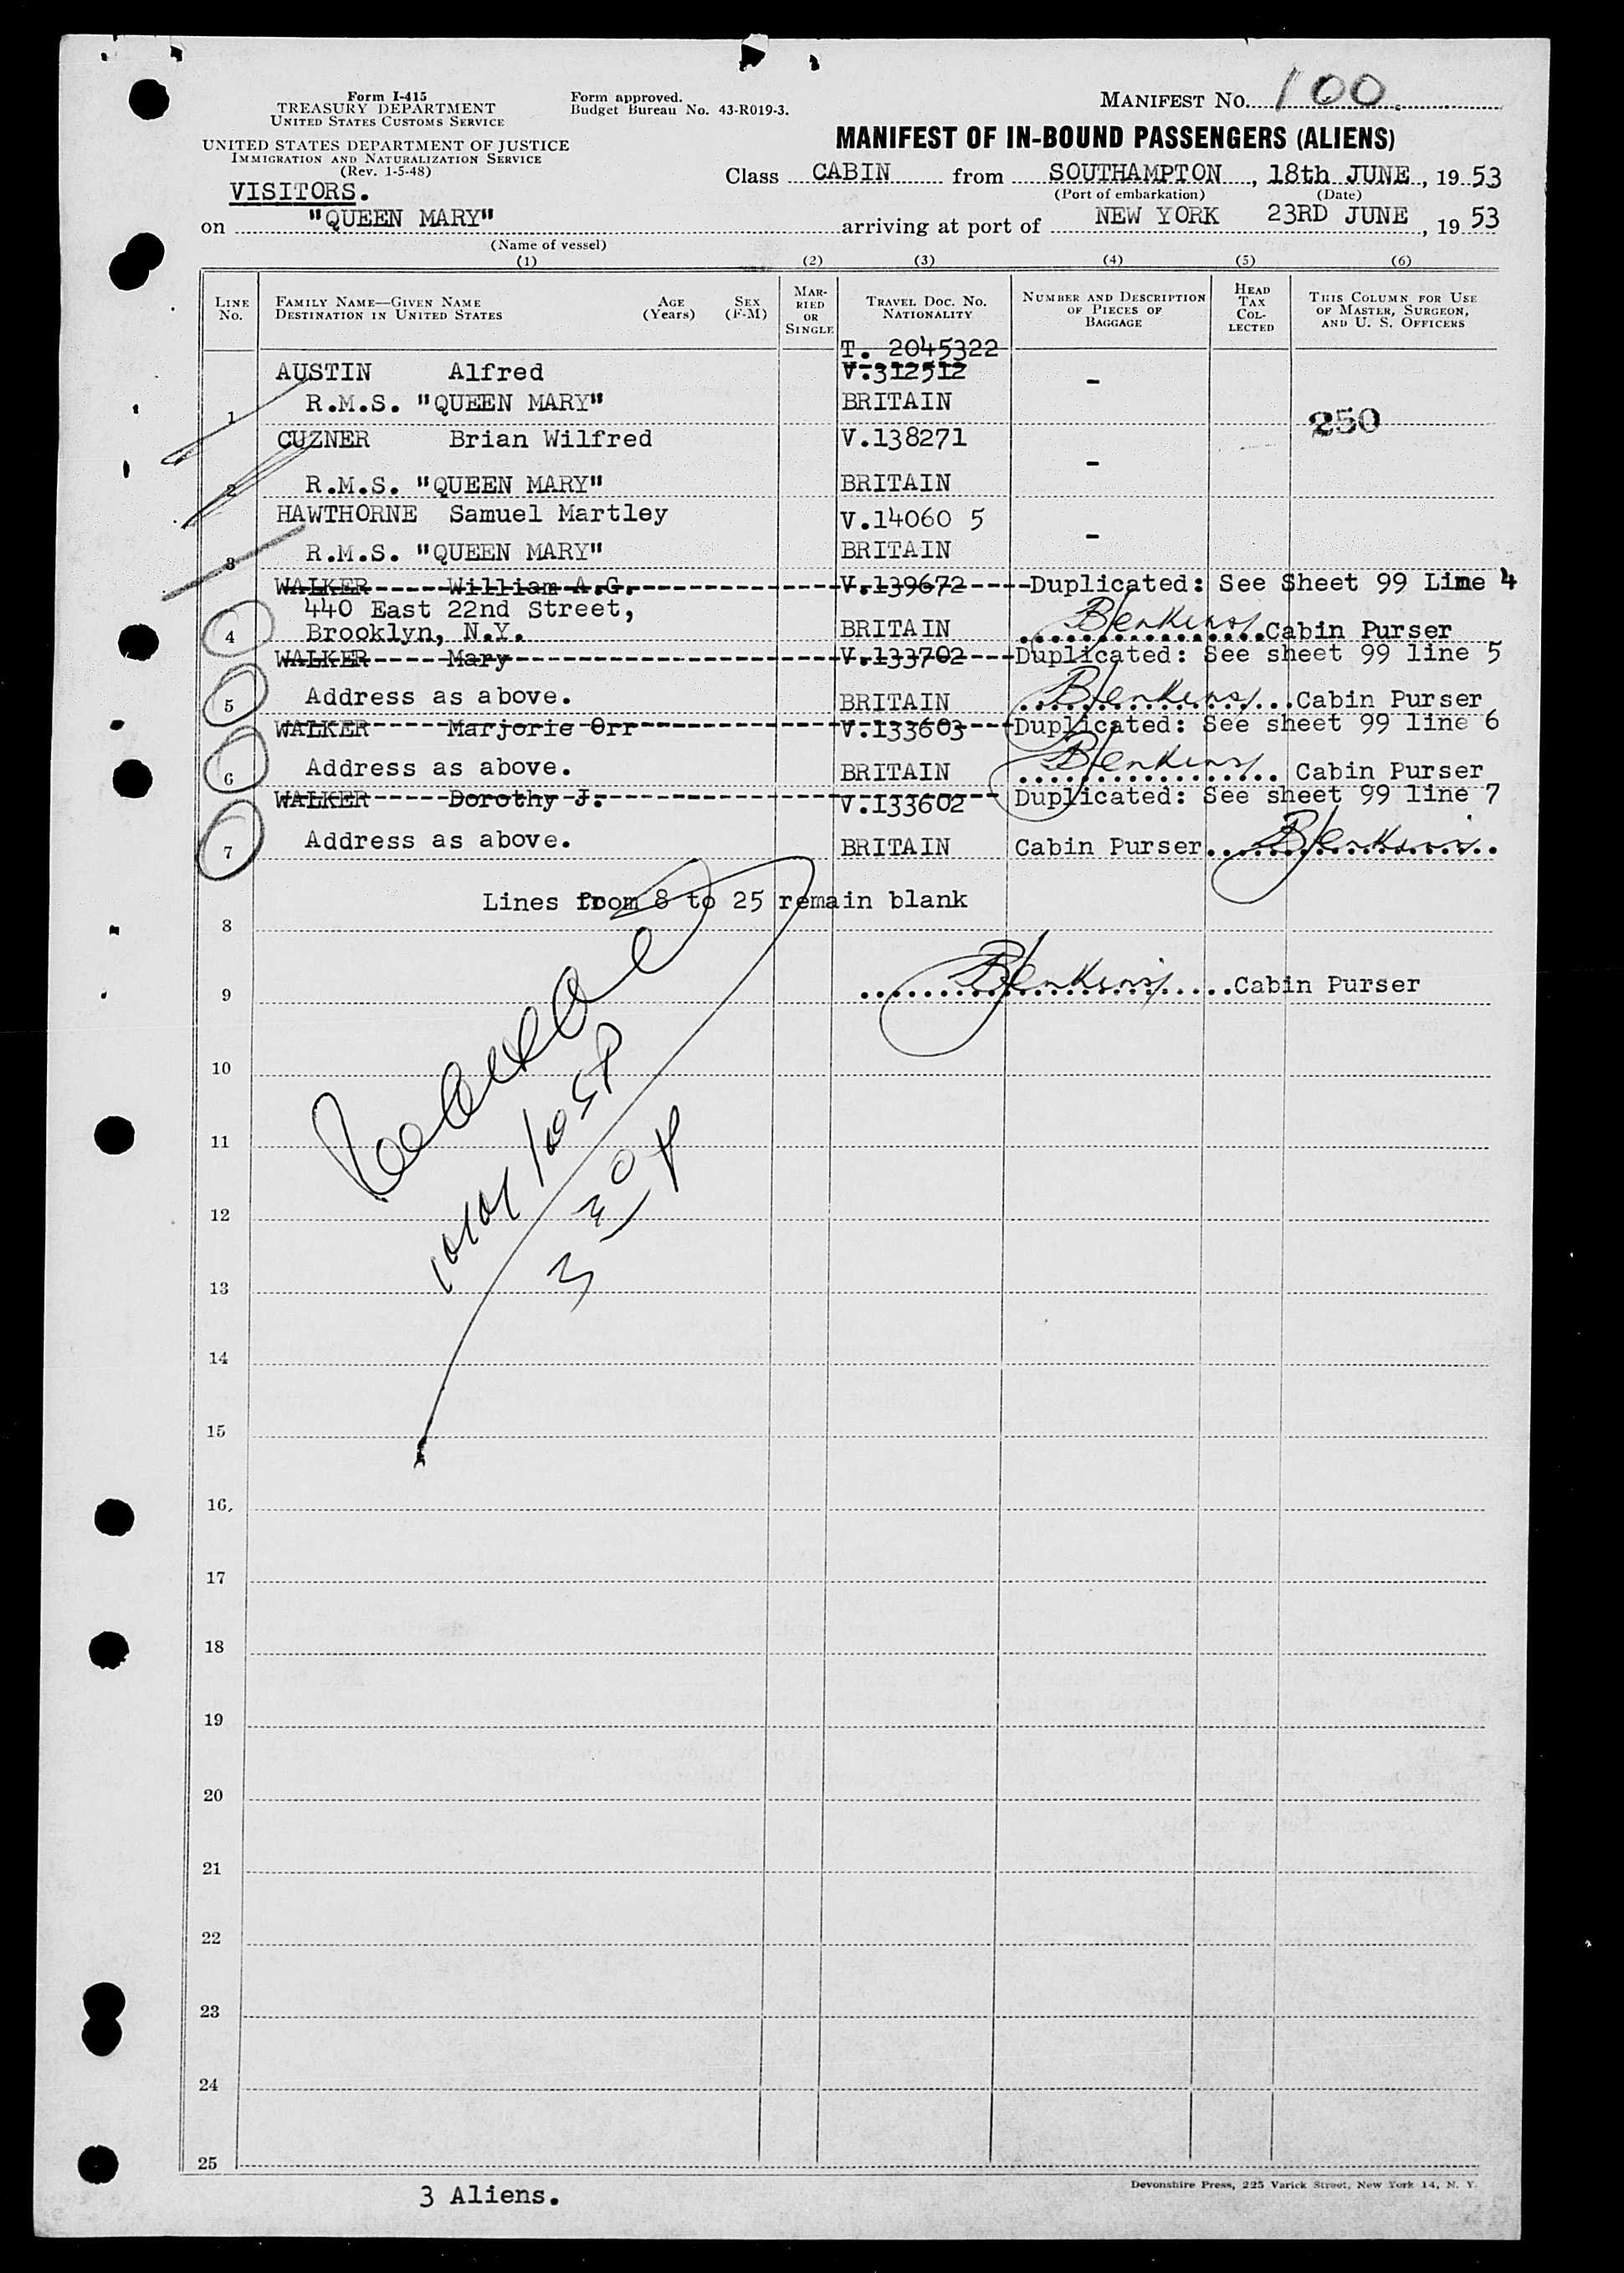 Form I-415
TREASURY DEPARTMENT
UNITED STATES CUSTOMS SERVICE
UNITED STATES DEPARTMENT OF JUSTICE
IMMIGRATION AND NATURALIZATION SERVICE
(Rev. 1-5-48)
Form approved.
Budget Bureau No. 43-R019-3.
MANIFEST NO. 100
MANIFEST OF IN-BOUND PASSENGERS (ALIENS)
Class CABIN from SOUTHAMPTON, 18th JUNE, 1953
(Port of embarkation) (Date)
VISITORS.
on "QUEEN MARY" arriving at port of NEW YORK 23RD JUNE, 1953
(Name of vessel)
(1) (2) (3) (4) (5) (6)
LINE No. FAMILY NAME—GIVEN NAME DESTINATION IN UNITED STATES AGE (Years) SEX (F-M) MARRIED OR SINGLE TRAVEL DOC. NO. NATIONALITY NUMBER AND DESCRIPTION OF PIECES OF BAGGAGE HEAD TAX COLLECTED THIS COLUMN FOR USE OF MASTER, SURGEON, AND U. S. OFFICERS
T. 2045322
AUSTIN Alfred V.312512 -
1 R.M.S. "QUEEN MARY" BRITAIN 250
CUZNER Brian Wilfred V.138271 -
2 R.M.S. "QUEEN MARY" BRITAIN
HAWTHORNE Samuel Martley V.14060 5 -
3 R.M.S. "QUEEN MARY" BRITAIN
WALKER William A.G. V.139672 Duplicated: See Sheet 99 Line 4
440 East 22nd Street,
4 Brooklyn, N.Y. BRITAIN BJenkins Cabin Purser
WALKER Mary V.133702 Duplicated: See sheet 99 line 5
5 Address as above. BRITAIN BJenkins Cabin Purser
WALKER Marjorie Orr V.133603 Duplicated: See sheet 99 line 6
6 Address as above. BRITAIN BJenkins Cabin Purser
WALKER Dorothy J. V.133602 Duplicated: See sheet 99 line 7
7 Address as above. BRITAIN Cabin Purser BJenkins
Lines from 8 to 25 remain blank
8
BJenkins Cabin Purser
9
10
11
12
13
14
15
16.
17
18
19
20
21
22
23
24
25
3 Aliens.
Devonshire Press, 225 Varick Street, New York 14, N. Y.